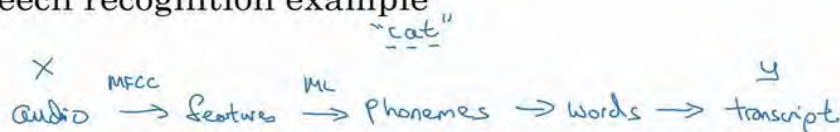 eech recognition example
"cat"
X MFCC ML y
audio → features → Phonemes → words → transcript